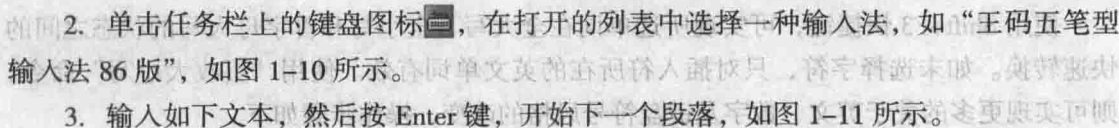 2. 单击任务栏上的键盘图标，在打开的列表中选择一种输入法，如“王码五笔型
输入法 86 版”，如图 1-10 所示。
3. 输入如下文本，然后按 Enter 键，开始下一个段落，如图 1-11 所示。